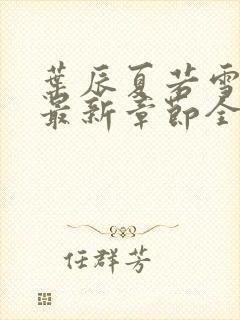 葉辰夏若雪
最新章節全
任群芳